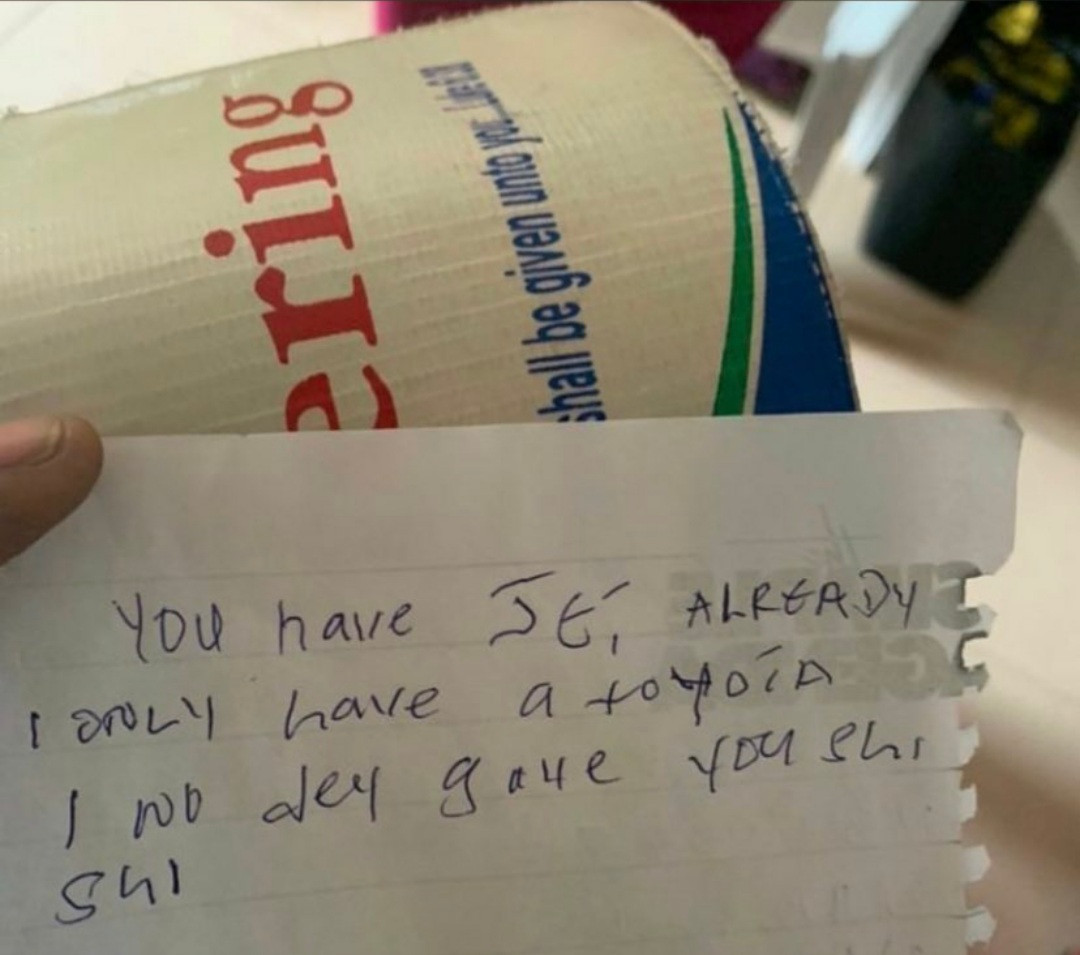 ering
shall be given unto you
YOU have JET ALREADY
I ONLY have a toyota
I no dey gave you shi
shi